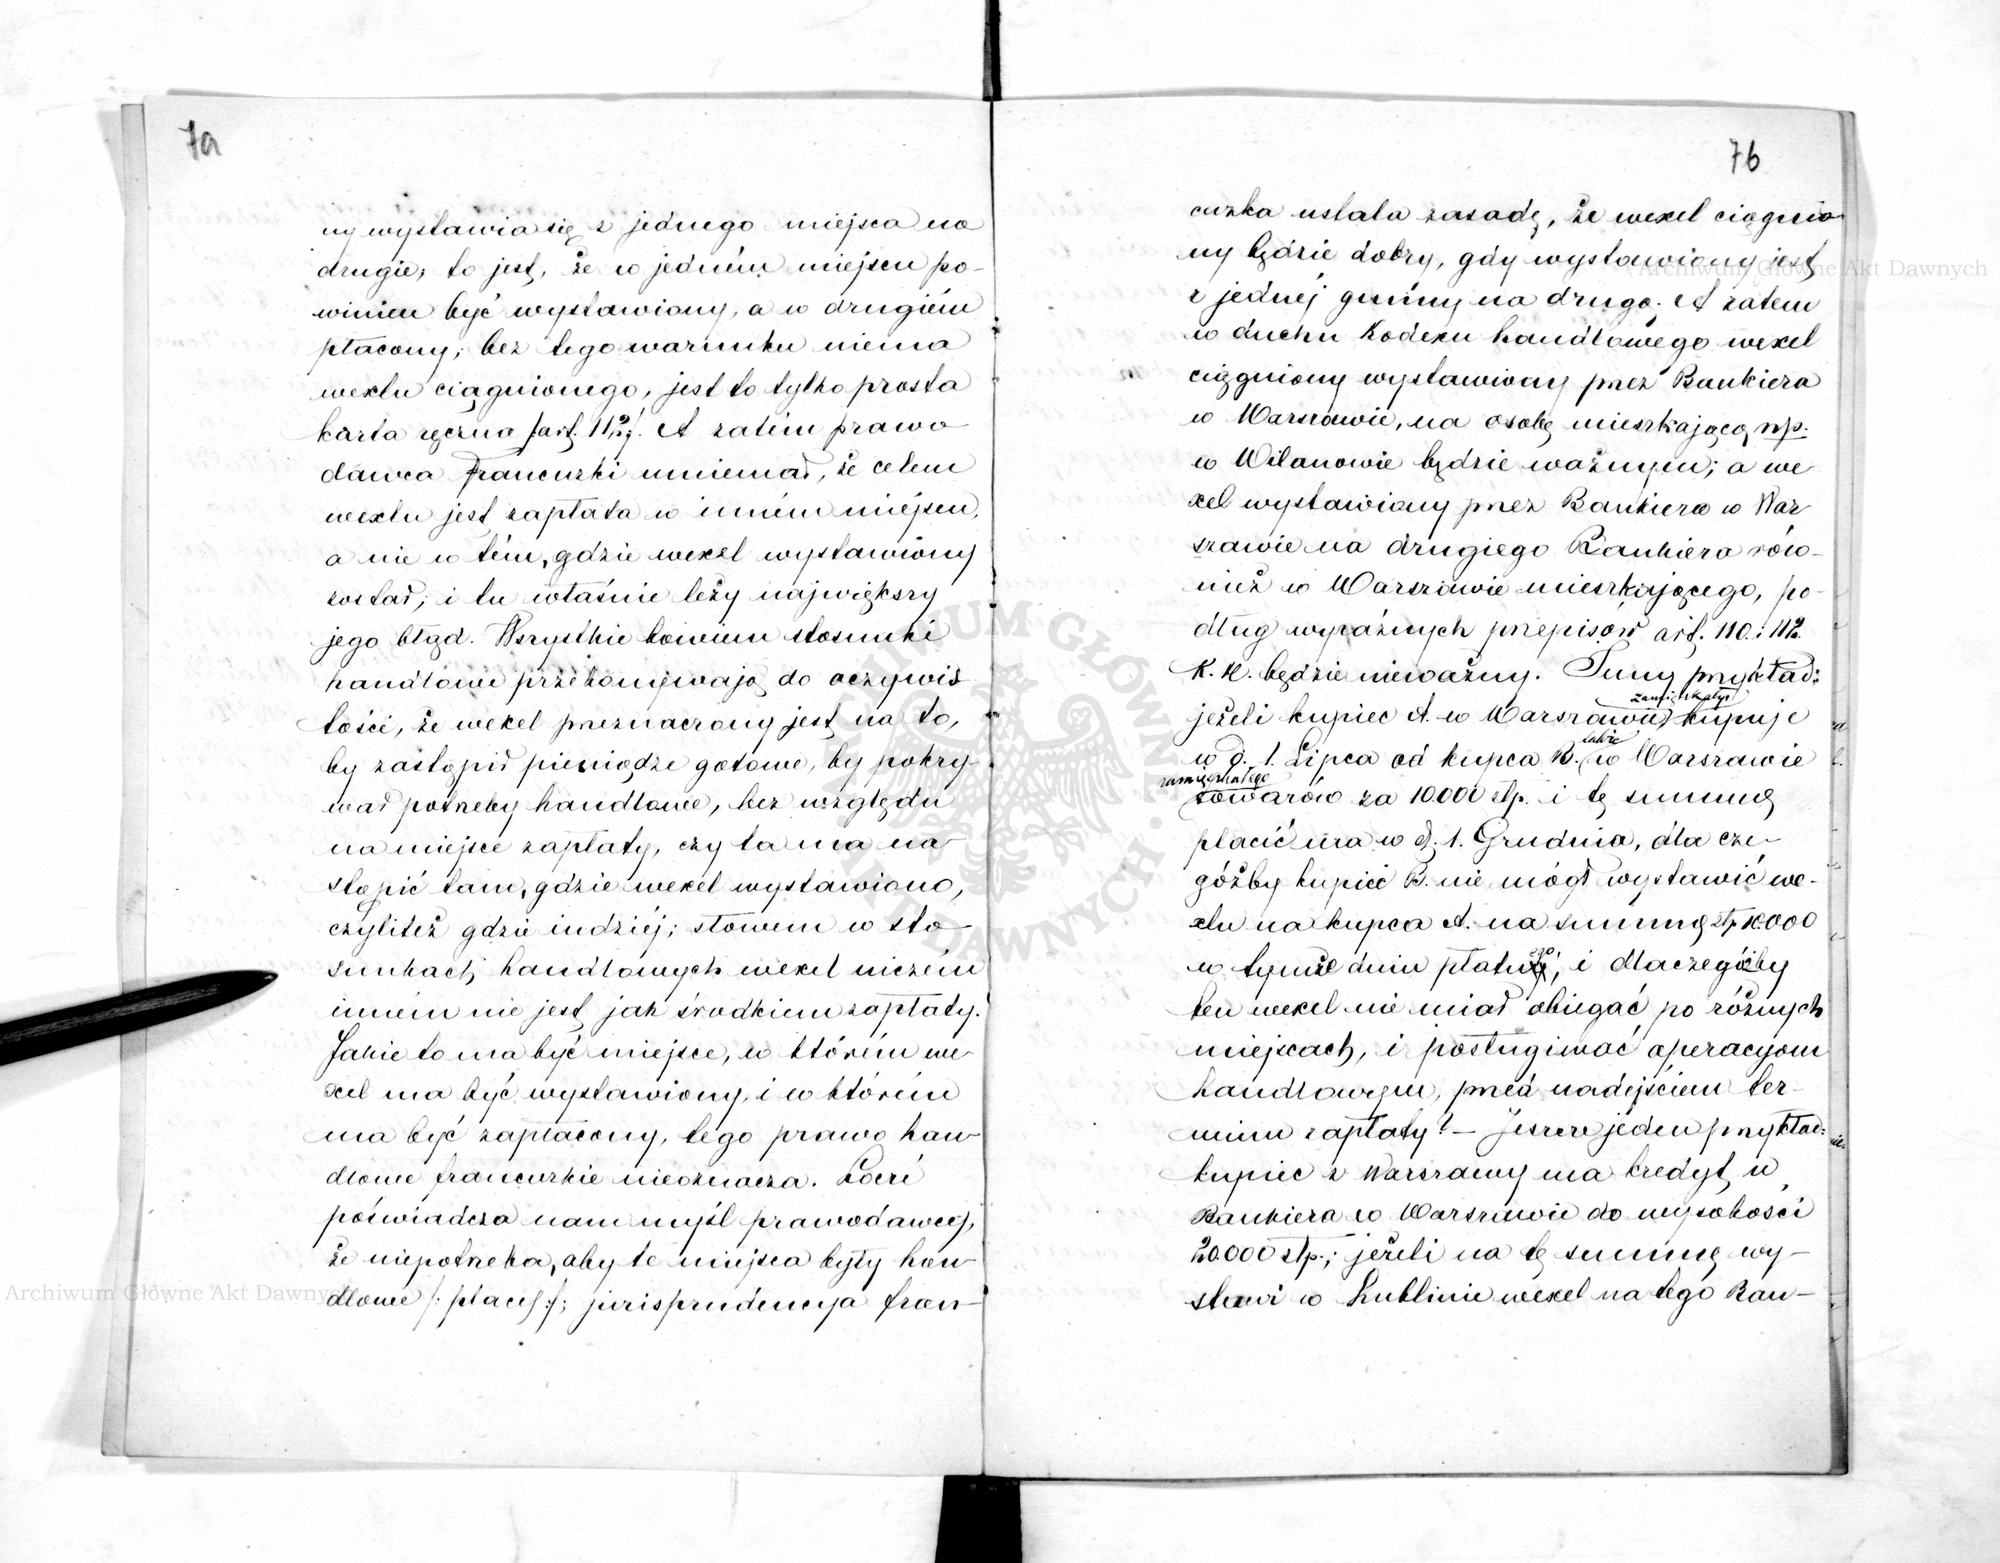 7a
ny wystawia się z jednego miejsca na
drugie, to jest, że w jedném miejscu po-
winien być wystawiony, a w drugiém
płacony; bez tego warunku niema
wexlu ciągnionego, jest to tylko prosta
karta ręczna /art. 112/. A zatém prawo
dawca francuzki mniemał, że celem
wexlu jest zapłata w inném miejscu,
a nie w tém, gdzie wexel wystawiony
został; i tu właśnie leży największy
jego błąd. Wszystkie bowiem stosunki
handlowe przekonywają do oczywis
tości, że wexel przeznaczony jest na to,
by zastąpił pieniądze gotowe, by pokry-
wał potrzeby handlowe, bez względu
na miejsce zapłaty, czy ta ma na-
stąpić tam, gdzie wexel wystawiono,
czyliteż gdzie indziéj; słowem w sto
sunkach handlowych wexel niczém
inném nie jest jak środkiem zapłaty.
Jakie to ma być miejsce, w którém we-
xel ma być wystawiony, i w którém
ma być zapłacony, tego prawo han-
dlowe francuzkie nieoznacza. Locré
poświadcza nam myśl prawodawcy,
że niepotrzeba, aby te miejsca były han-
dlowe /: places :/; jurisprudencya fran-
7b
cuzka ustala zasadę, że wexel ciągnio
ny będzie dobry, gdy wystawiony jest
z jednéj gminy na drugą. A zatem
w duchu Kodexu handlowego wexel
ciągniony wystawiony przez Bankiera
w Warszawie, na osobę mieszkającą np.
w Wilanowie będzie ważnym; a we
xel wystawiony przez Bankiera w War
szawie na drugiego Bankiera rów-
nież w Warszawie mieszkającego, po-
dług wyraźnych przepisów art. 110. i 112.
K. H. będzie nieważny. Inny przykład:
zamieszkały
jeżeli kupiec A. w Warszawie kupuje
także
w d. 1. Lipca od kupca B. w Warszawie
zamieszkałego
towarów za 10.000 złp. i tę summę
płacić ma w d. 1. Grudnia, dla cze-
góżby kupiec B. nie mógł wystawić we-
xlu na kupca A. na summę złp 10.000
w tymże dniu płatnego, i dlaczegóżby
ten wexel nie miał obiegać po różnych
miejscach, i posługiwać operacyom
handlowym, przed nadejściem ter-
minu zapłaty? — Jeszcze jeden przykład:
kupiec z Warszawy ma kredyt u
Bankiera w Warszawie do wysokości
20.000 złp.; jeżeli na tę summę wy-
stawi w Lublinie wexel na tego Ban-
Archiwum Główne Akt Dawnych
Archiwum Główne Akt Dawnych